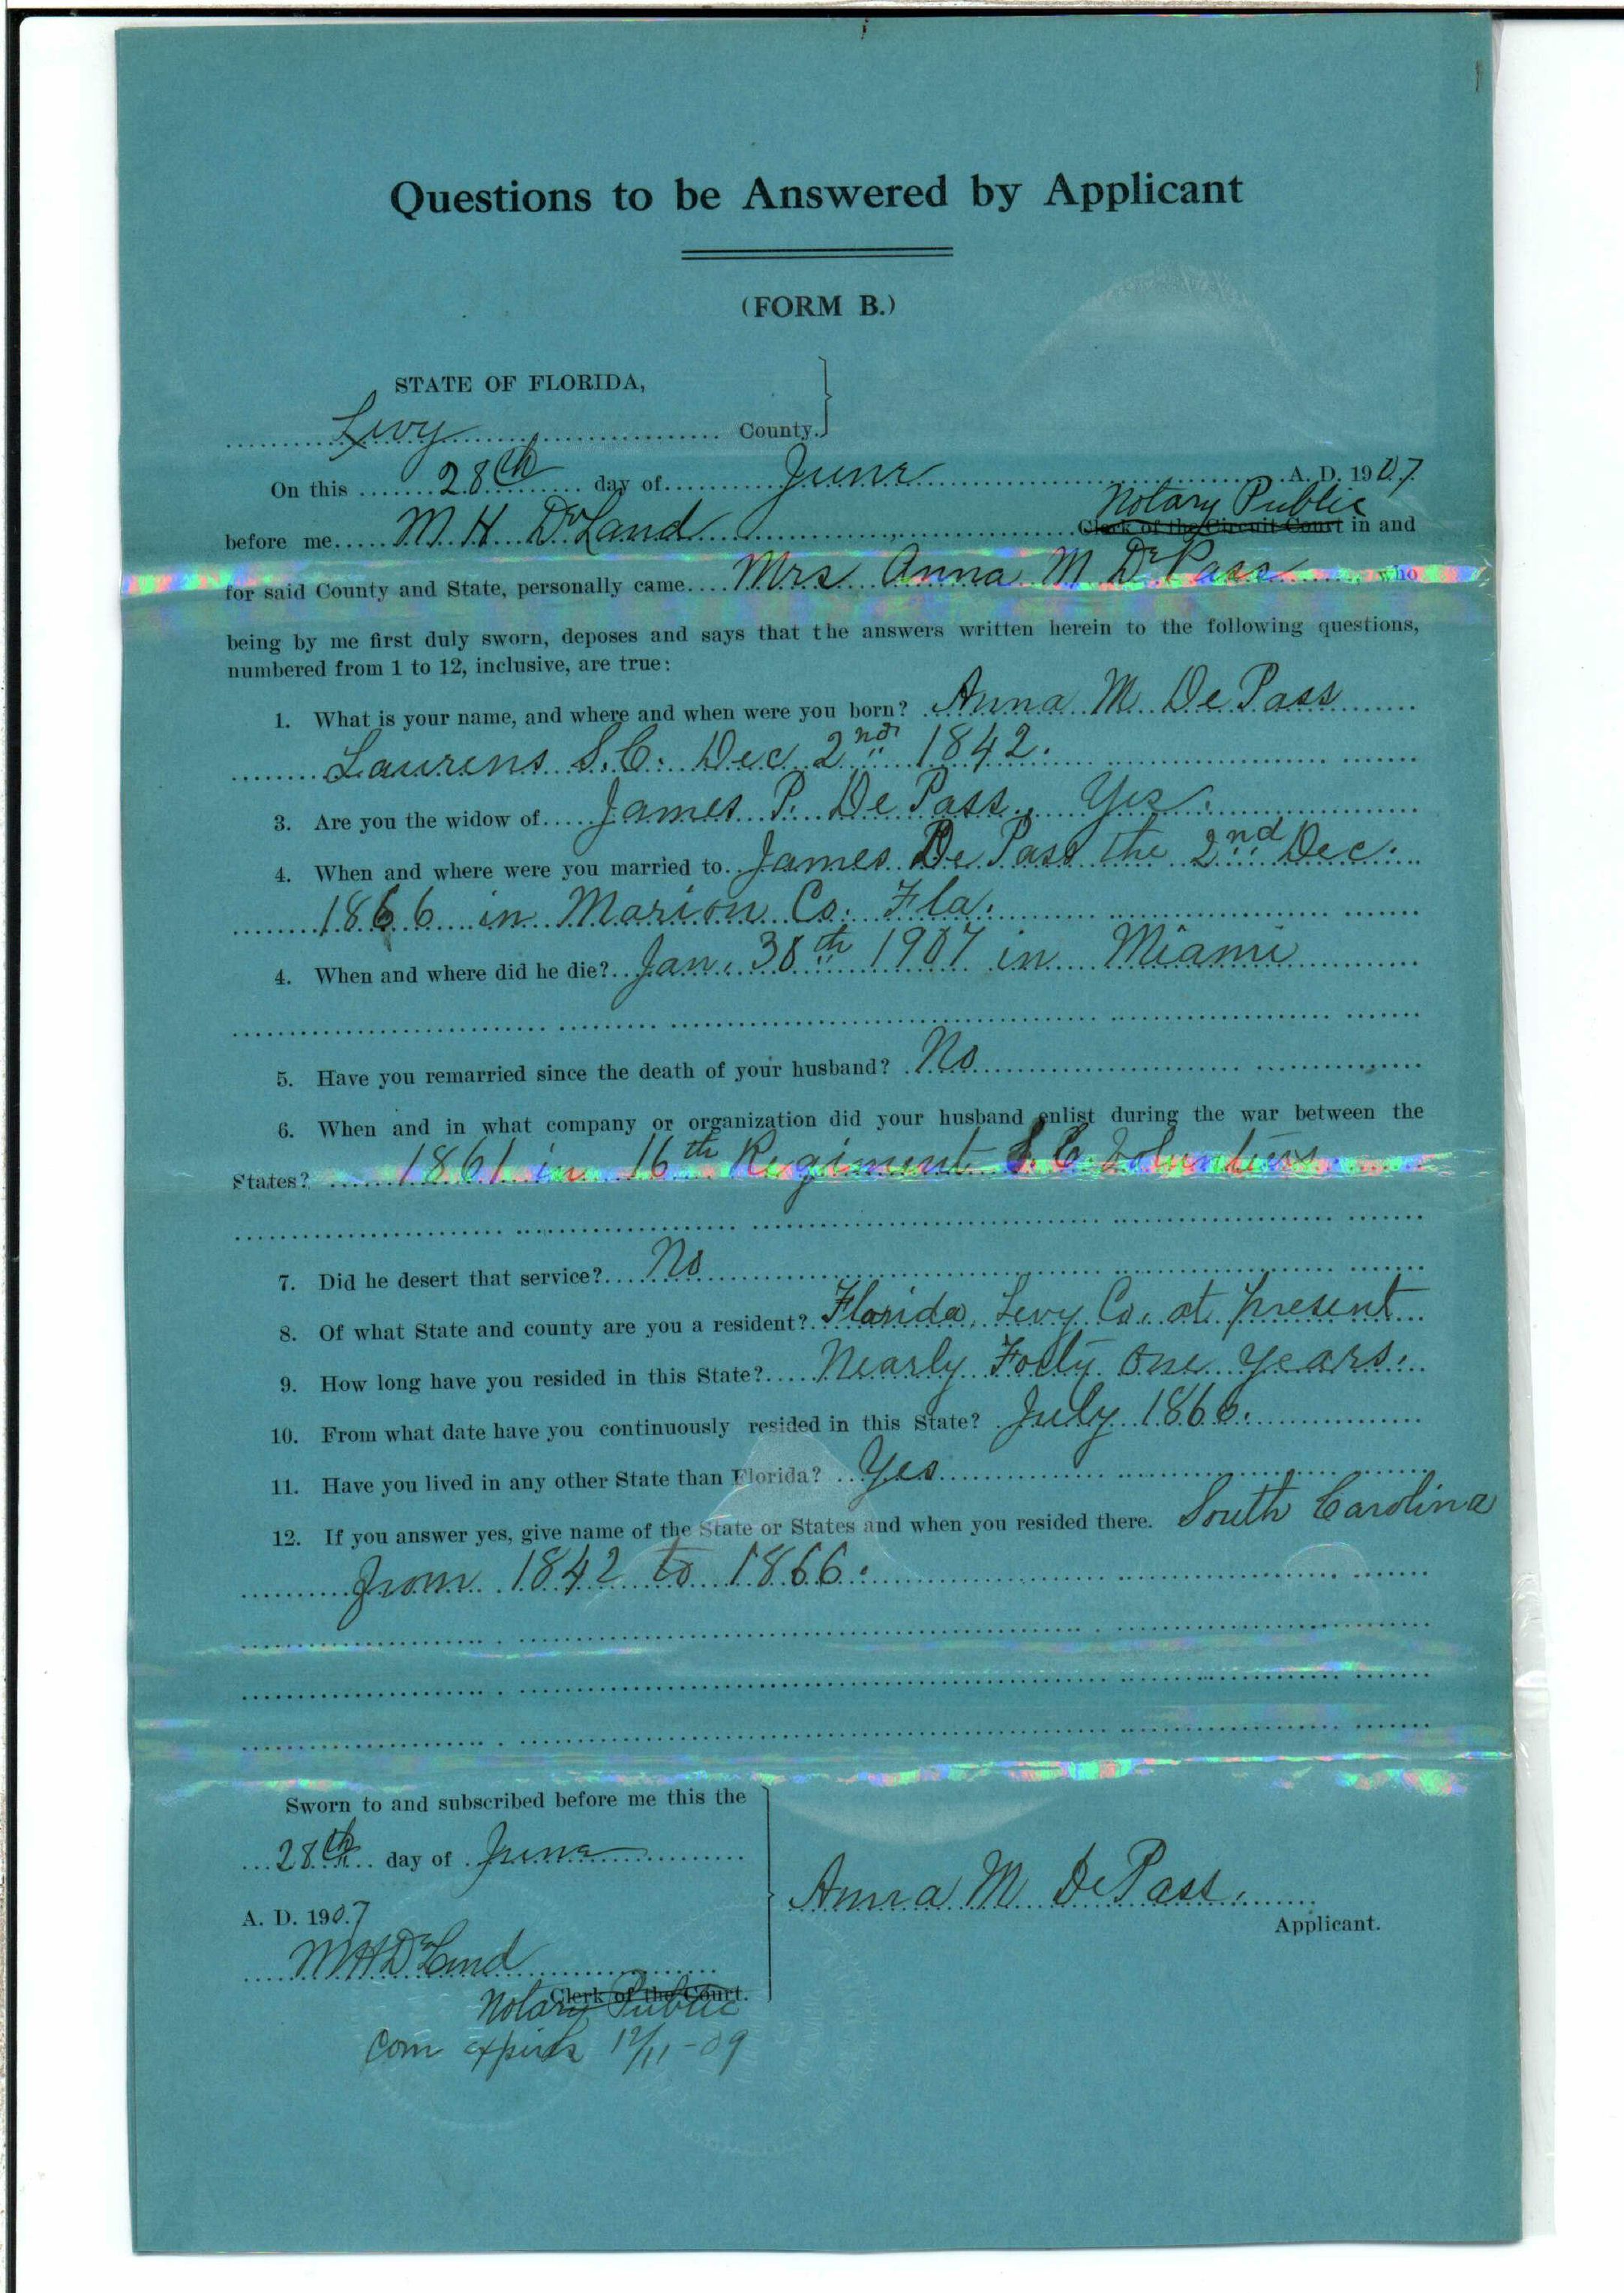 Questions to be Answered by Applicant
(FORM B.)
STATE OF FLORIDA,
Levy County.
On this 28th day of June A. D. 1907
Notary Public
before me M. H. DeLand Clerk of the Circuit Court in and
for said County and State, personally came Mrs Anna M DePass, who
being by me first duly sworn, deposes and says that the answers written herein to the following questions,
numbered from 1 to 12, inclusive, are true:
1. What is your name, and where and when were you born? Anna M. De Pass
Laurens S.C. Dec 2nd 1842.
3. Are you the widow of James P. De Pass, Yes.
4. When and where were you married to James De Pass the 2nd Dec.
1866 in Marion Co. Fla.
4. When and where did he die? Jan. 30th 1907 in Miami
5. Have you remarried since the death of your husband? No
6. When and in what company or organization did your husband enlist during the war between the
States? 1861 in 16th Regiment S. C. Volunteers
7. Did he desert that service? No
8. Of what State and county are you a resident? Florida, Levy Co. at present
9. How long have you resided in this State? Nearly Forty One years.
10. From what date have you continuously resided in this State? July 1866.
11. Have you lived in any other State than Florida? Yes
12. If you answer yes, give name of the State or States and when you resided there. South Carolina
from 1842 to 1866.
Sworn to and subscribed before me this the
28th day of June
A. D. 1907
M H DeLand
Clerk of the Court.
Notary Public
Com expires 12/11-09
Anna M De Pass.
Applicant.